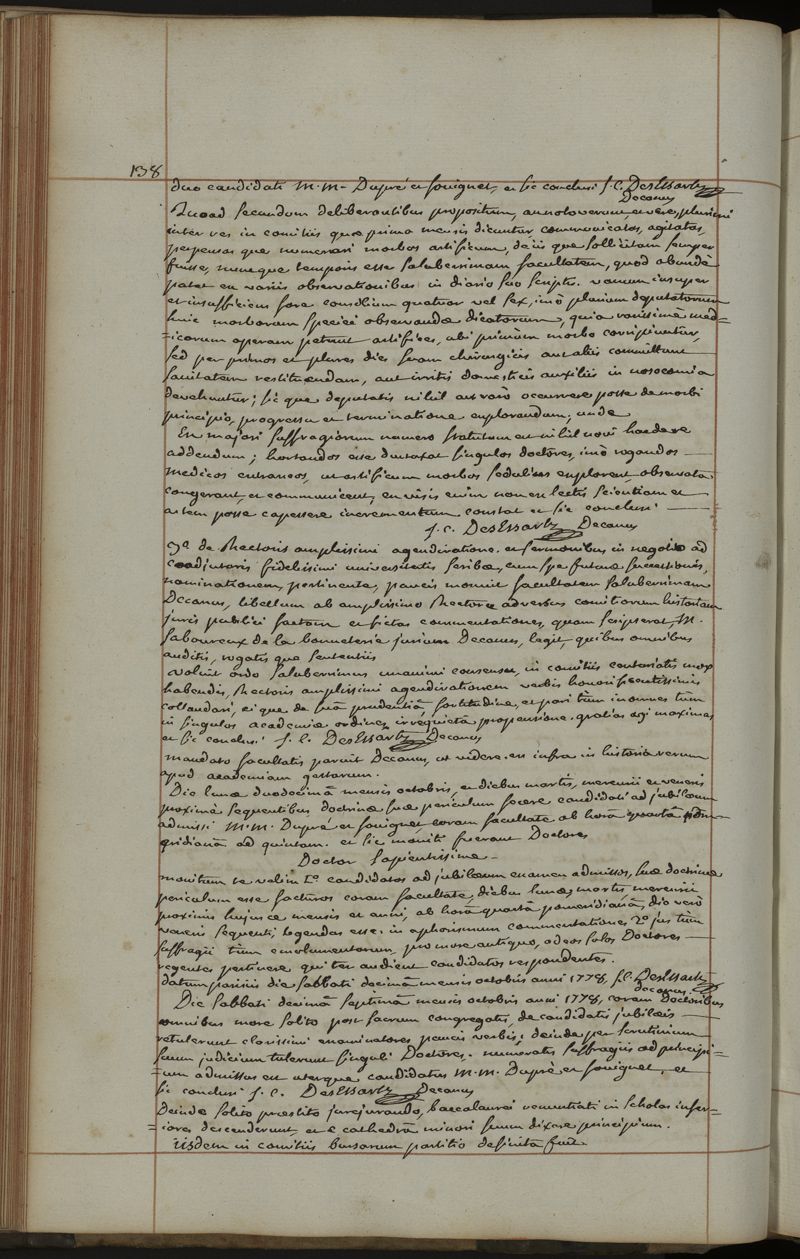 138
duo candidati M.M. Dupré et souignet, et sic conclusi J.C. DesEssartz
Decanus
Quoad secundum deliberantibus propositum, annotaverunt, plurimi
inter res in comitiis quae prima mensis dicuntur communicatas, agitatas,
perpensas que numerari morbos artificum, de iis que sollicitam semper
fuisse, nunc que temporis esse saluberrimam facultatem, quod abundè
patet ex variis observationibus in diario suo scriptis. vanum insuper
et insufficiens fore consilium quatuor vel sex, imò plurium deputatorum
huic morborum speciei observandae dicatorum, quia rarissimè med=
=icorum operam petunt artifices, ubi primùm morbo corripiuntur,
sed per primos et plures dies suam chirurgicis aut aliis committunt
sanitatem restituendam, aut irritis domesticis auxiliis in nosocomia
devehuntur; sic que deputatis nihil aut rarò occurrere posse de morbi
principio, progressu et terminatione explorandum; unde
Ex majori suffragiorum numero statutum est nihil novi hac de re
addendum; hortandos esse duntaxat singulos doctores, imò rogandos
medicos extraneos, ut artificum morbos sedulius explorent, observata
congerant, et communicent, ex visis enim non ex lectis scientiam et
artem posse capessere incrementum constat et sic conclusi
J.C. DesEssartz Decanus
3° de Rectoris amplissimi agendi ratione et sermonibus in negotio ad
coadjutoris fidelissimi universitatis scribae, cum spe futurae successionis,
nominationem, pertinente, paucis monuit facultatem saluberrimam
Decanus, libellum ab amplissimo Rectore adversus comitiorum historiam
juris publici factam et fictas commentationes, quam scripserat, M.
saboureux de la bonneterie jurium Decanus, legit, quibus omnibus
auditis, rogatis que sententiis
voluit ordo saluberrimus unanimi consensu, in comitiis centuriatis mox
habendis, Rectoris amplissimi agendi rationem verbis honorificentissimis
collaudari, ei que de suâ prudentiâ, fortitudine, et pari tùm in omnes tùm
in singulos academiae ordines irrequieta propensione gratias agi maximas
et sic conclusi J.C. DesEssartz Decanus
mandato facultatis paruit Decanus, ut videre est infra in historia rerum
apud academiam gestarum.
Die lunae duodecimâ mensis octobris, et diebus martis, mercurii et veneris
proximè sequentibus doctrinae suae periculum fecere candidati ad jubilaeum
admissi M.M. Dupré et souignet, coram facultate ab horâ quartâ pom-
eridianâ ad quintam. et sic moniti fuerant Doctores
Doctor sapientissime
monitum te velim 1° candidatos ad jubilaeum examen admissos, suae doctrinae
periculum esse facturos coram facultate, diebus lunae, martis mercurii
proximis hujusce mensis et anni, ab horâ quartâ pomeridianâ, die verò
veneris sequenti, legendas esse in aphorismum commentationes 2° jus tùm
suffragii tùm emolumentorum pro more antiquo, ad eos solos Doctores
regentes pertinere qui ter audient candidatos respondentes.
datum parisiis die sabbati decimâ mensis octobris anni 1778. J.C. DesEssartz
decanus.
Die sabbati decimâ septimâ mensis octobris anni 1778, coram Doctoribus
omnibus more solito post sacrum congregatis, de candidatis jubilaeis
retulerunt clarissimi examinatores paucis verbis; deinde per scrutinium
suum judicium tulerunt singuli Doctores. numeratis suffragiis ad principi=
=um admissus est uterque candidatus M.M. Dupré et souignet, et
sic conclusi J.C. DesEssartz Decanus
Deinde solito praestito jurejurando, baccalaurei renuntiati in scholas infer=
=iores descenderunt, et è cathedrâ minori suum dixere principium.
iisdem in comitiis bursarum partitio definita fuit.